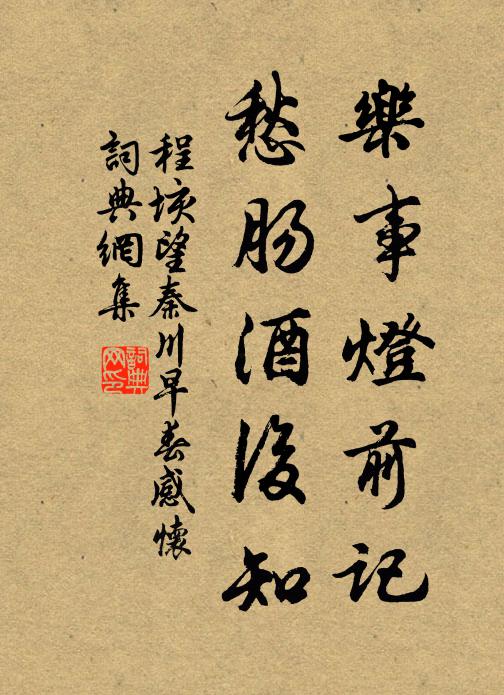 樂事燈前記
愁腸酒後知
程垓望秦川早春感懷
詞典網集
詞典网印